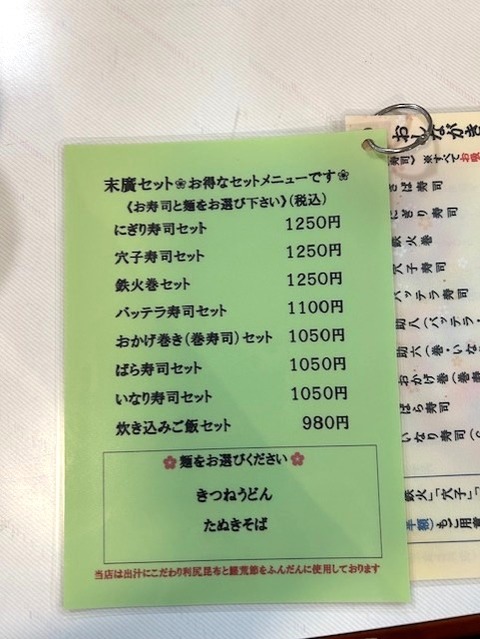 末廣セット❀お得なセットメニューです❀
《お寿司と麺をお選び下さい》(税込)
にぎり寿司セット 1250円
穴子寿司セット 1250円
鉄火巻セット 1250円
バッテラ寿司セット 1100円
おかげ巻き(巻寿司)セット 1050円
ばら寿司セット 1050円
いなり寿司セット 1050円
炊き込みご飯セット 980円
✿麺をお選びください✿
きつねうどん
たぬきそば
当店は出汁にこだわり利尻昆布と鰹荒節をふんだんに使用しております
おしながき
寿司》※すべてお
さば寿司
にぎり寿司
鉄火巻
穴子寿司
バッテラ寿司
助八(バッテラ・
助六(巻・いな
おかげ巻(巻寿
ばら寿司
いなり寿司(
鉄火」「穴子」
半額)もご用意